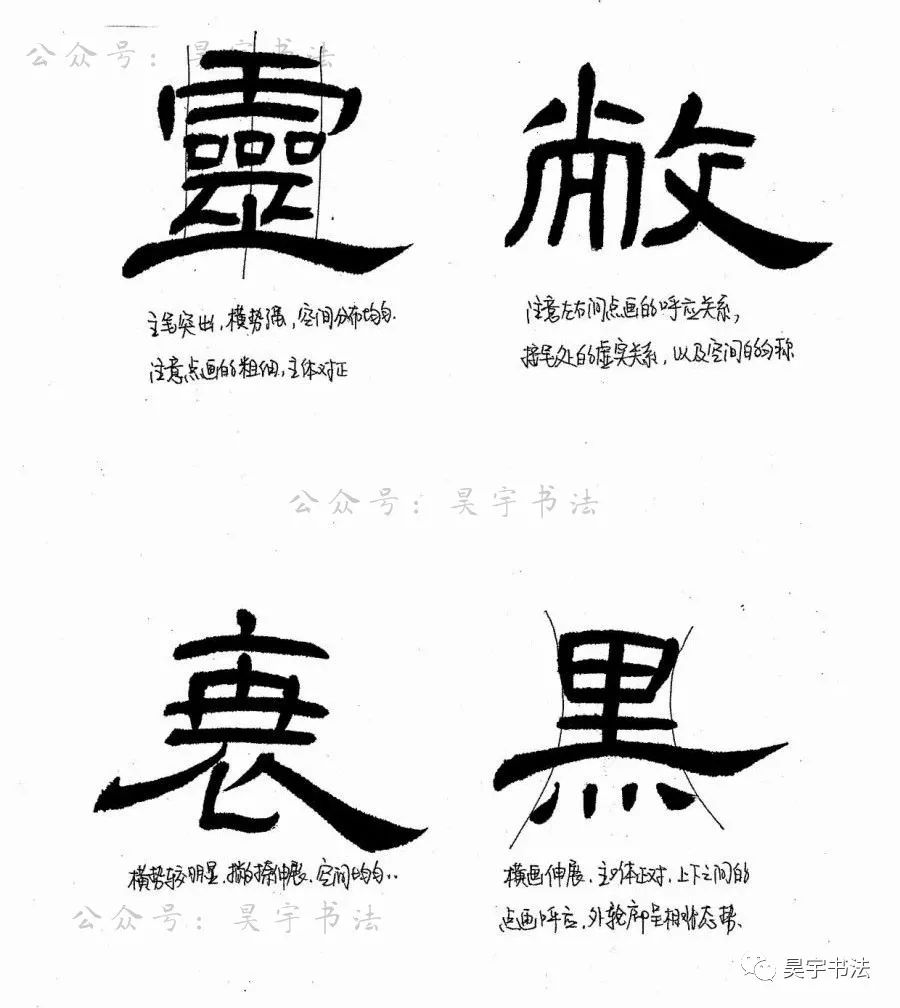 公众号：昊宇书法
靈
敝
主笔突出，横势强，空间分布均匀．
注意点画的粗细，主体对正
注意左右间点画的呼应关系，
接笔处的虚实关系，以及空间的匀称
公众号：昊宇书法
衷
黑
横势较明显，撇捺伸展，空间均匀．．
横画伸展，主体正对，上下之间的
点画呼应，外轮廓呈相背态势．
公众号：昊宇书法
昊宇书法